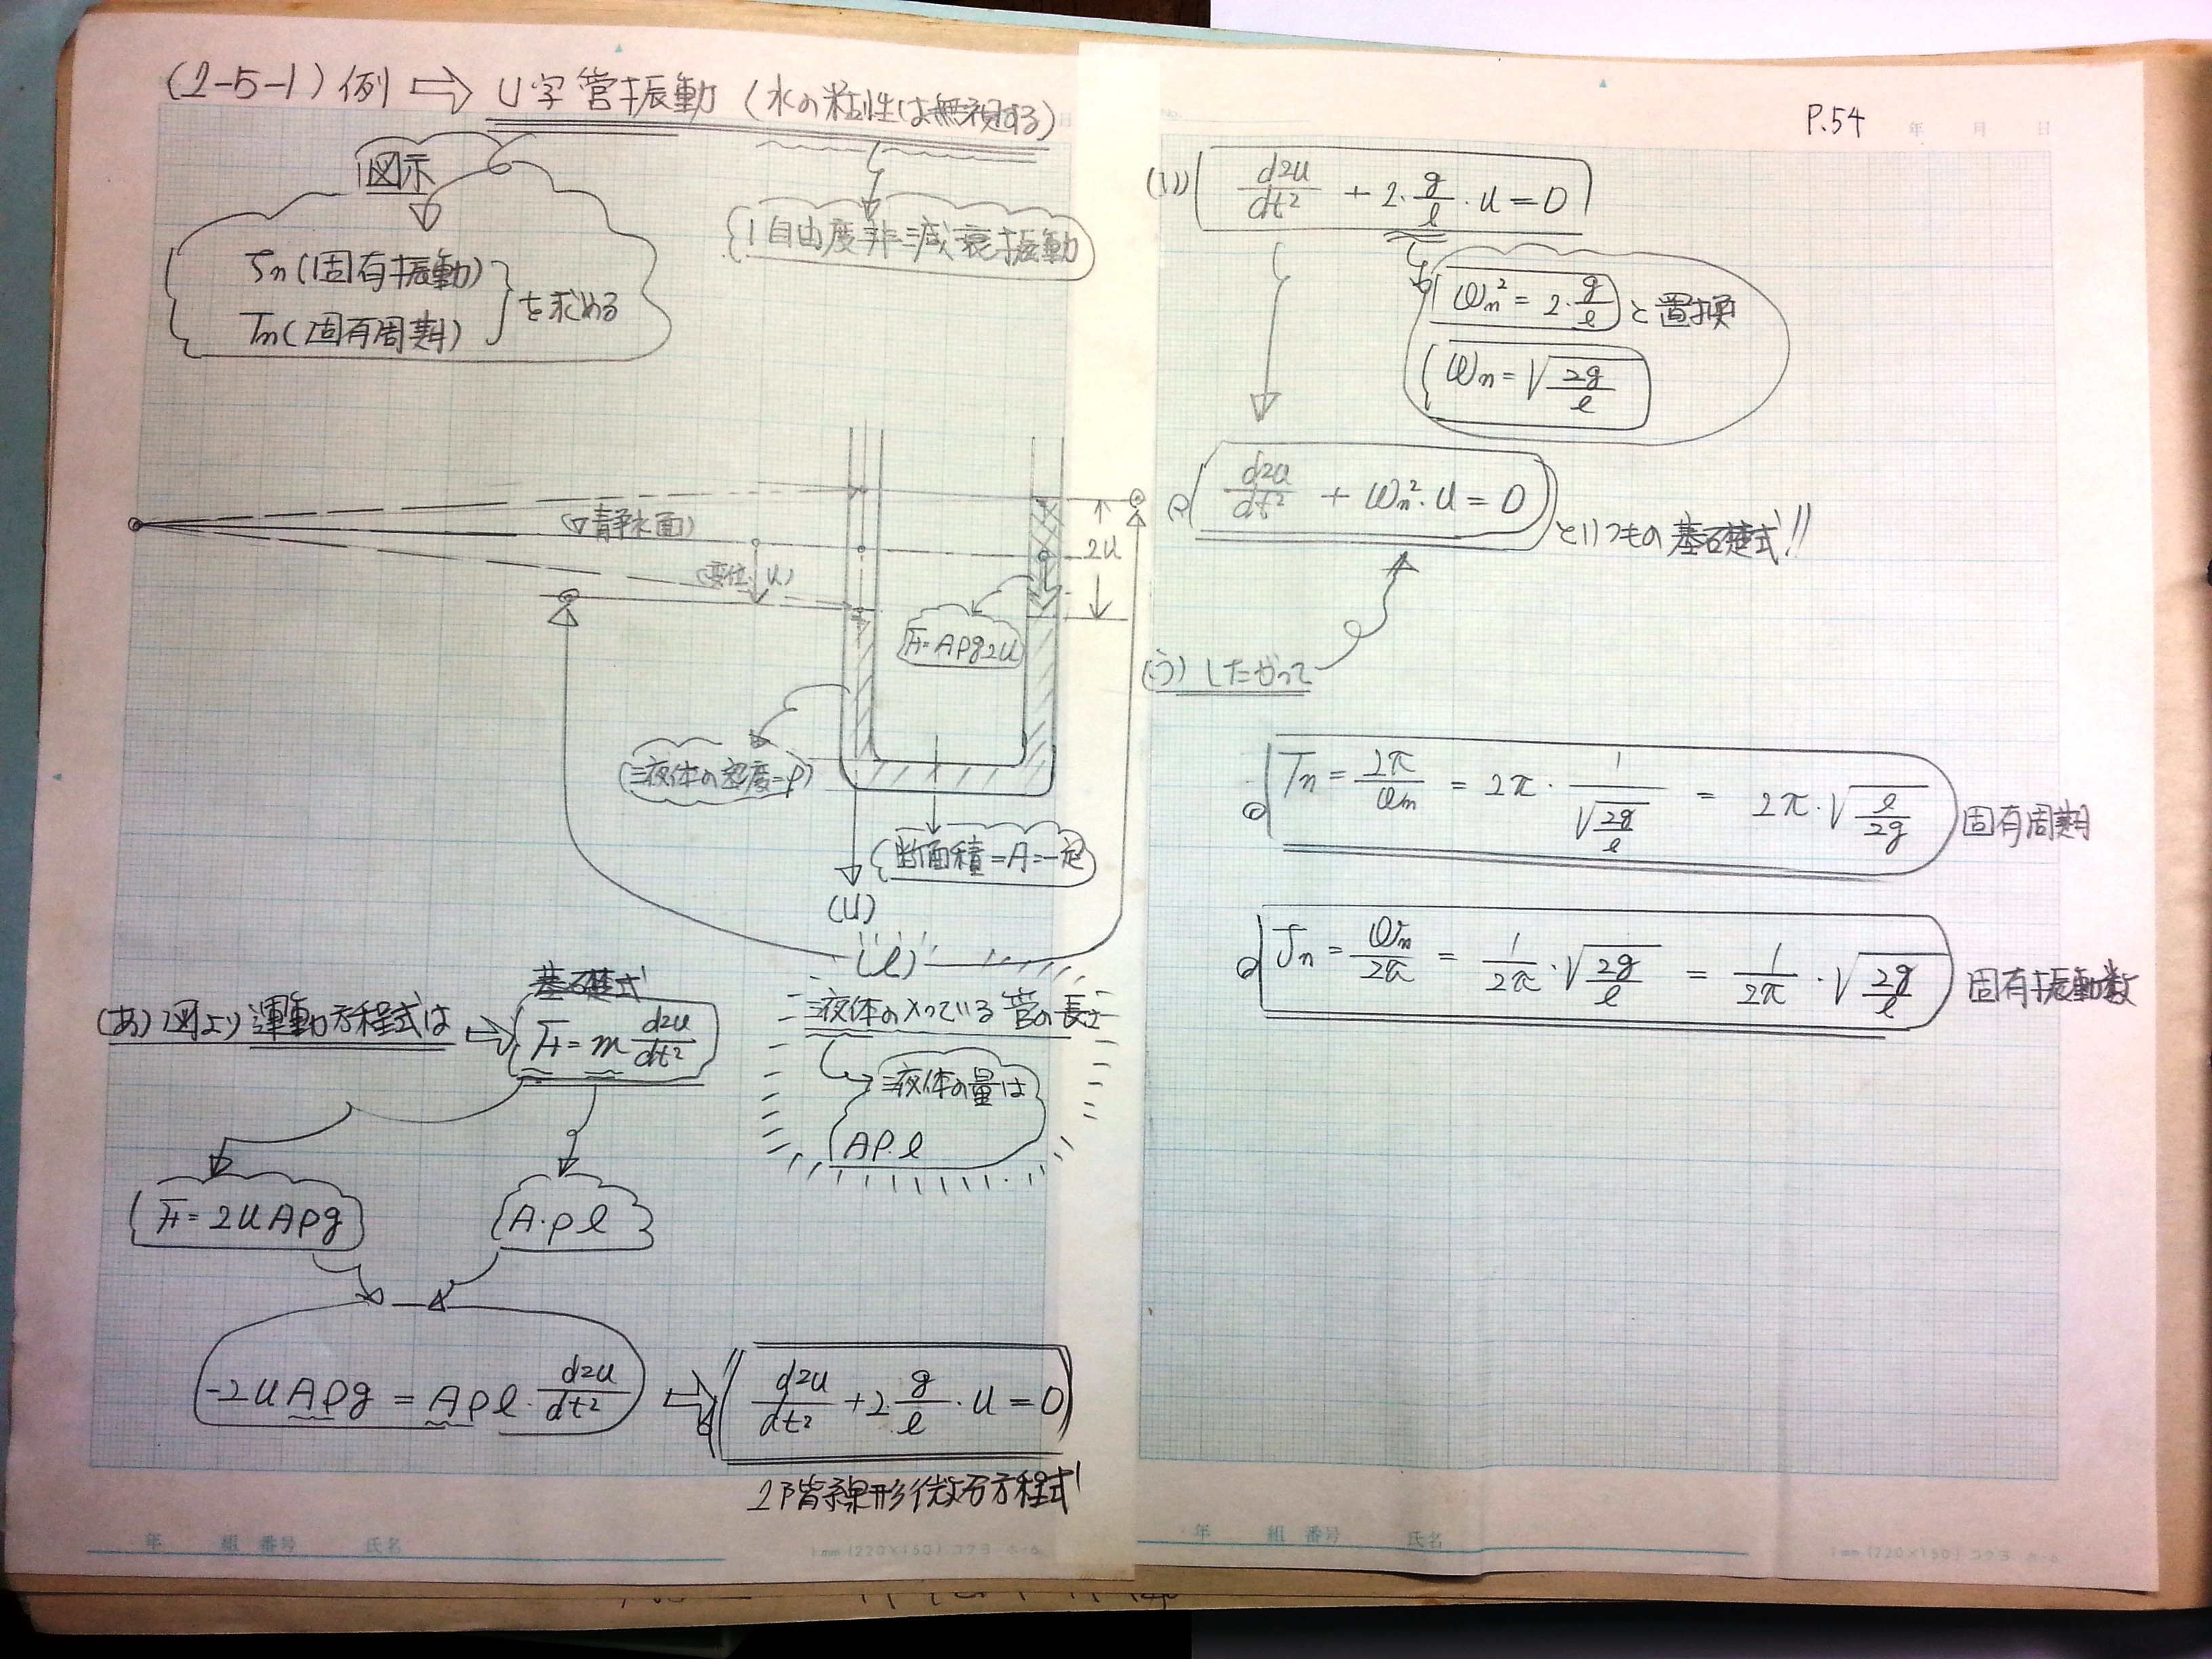 (2-5-1) 例 ⇨ U字管振動 (水の粘性は無視する)
図示
fn (固有振動)
Tn (固有周期)
を求める
1自由度非減衰振動
(▽静水面)
(変位 u)
2u
F=Aρg2u
(液体の密度=ρ)
断面積=A=一定
(u)
(l)
液体の入っている管の長さ
液体の量は
Aρ.l
基礎式
(あ) 図より運動方程式は ⇨ F = m d2u/dt2
F = 2uAρg
A・ρl
-2uAρg = Aρl・d2u/dt2 ⇨ d2u/dt2 + 2・g/l・u = 0
2階線形微分方程式
年 組 番号 氏名
1mm (220×150) コクヨ ホ-
P.54
年 月 日
(い) d2u/dt2 + 2・g/l・u = 0
ωn² = 2・g/l と置換
ωn = √2g/l
d2u/dt2 + ωn²・u = 0 といつもの基礎式!!
(う) したがって
Tn = 2π/ωn = 2π・1/√2g/l = 2π・√l/2g 固有周期
fn = ωn/2π = 1/2π・√2g/l = 1/2π・√2g/l 固有振動数
年 組 番号 氏名
1mm (220×150) コクヨ ホ-